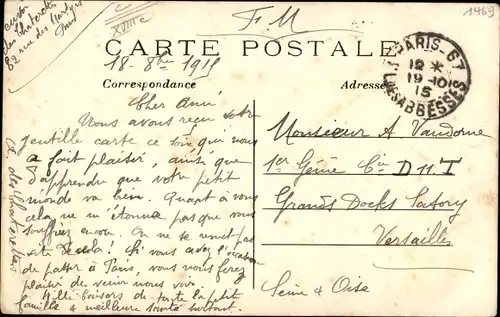 XVIIIe
F M
1469
CARTE POSTALE
PARIS 67
12 *
19-10
15
R. DES ABBESSES
18-8bre 1915
Correspondance
Adresse
82 rue des Martyrs
Cher Ami
Nous avons reçu votre
gentille carte ce soir, qui nous
a fait plaisir, ainsi que
d'apprendre que votre petit
monde va bien. Quant à vous
cela ne m'étonne pas que vous
souffriez encore. On ne se remet pas
vite de cela! Si vous avez l'occasion
de passer à Paris, vous nous ferez
plaisir de venir nous voir
Mille baisers de toute la petite
famille & meilleure santé surtout.
Monsieur A Vaudorne
1er Génie Cie D 11 T
Grands Docks Satory
Versailles
Seine & Oise